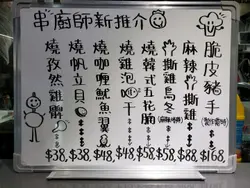 串廚師新推介
脆皮豬手(製作需時) $168
麻辣手撕雞 $88
手撕雞烏冬(麻辣/烤) $58
燒韓式五花腩 $58
燒雞泡 干 $48
燒咖喱魷魚翼 $48
燒帆立貝 $38
燒孜然雞髀 $38